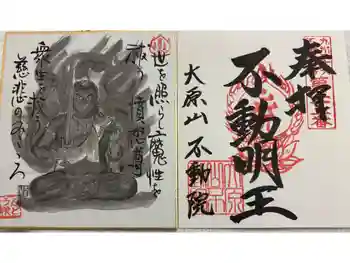 奉拝
不動明王
大原山 不動院
世を照らし魔性を
放つ憤怒尊
衆生を救う
慈悲のみこころ